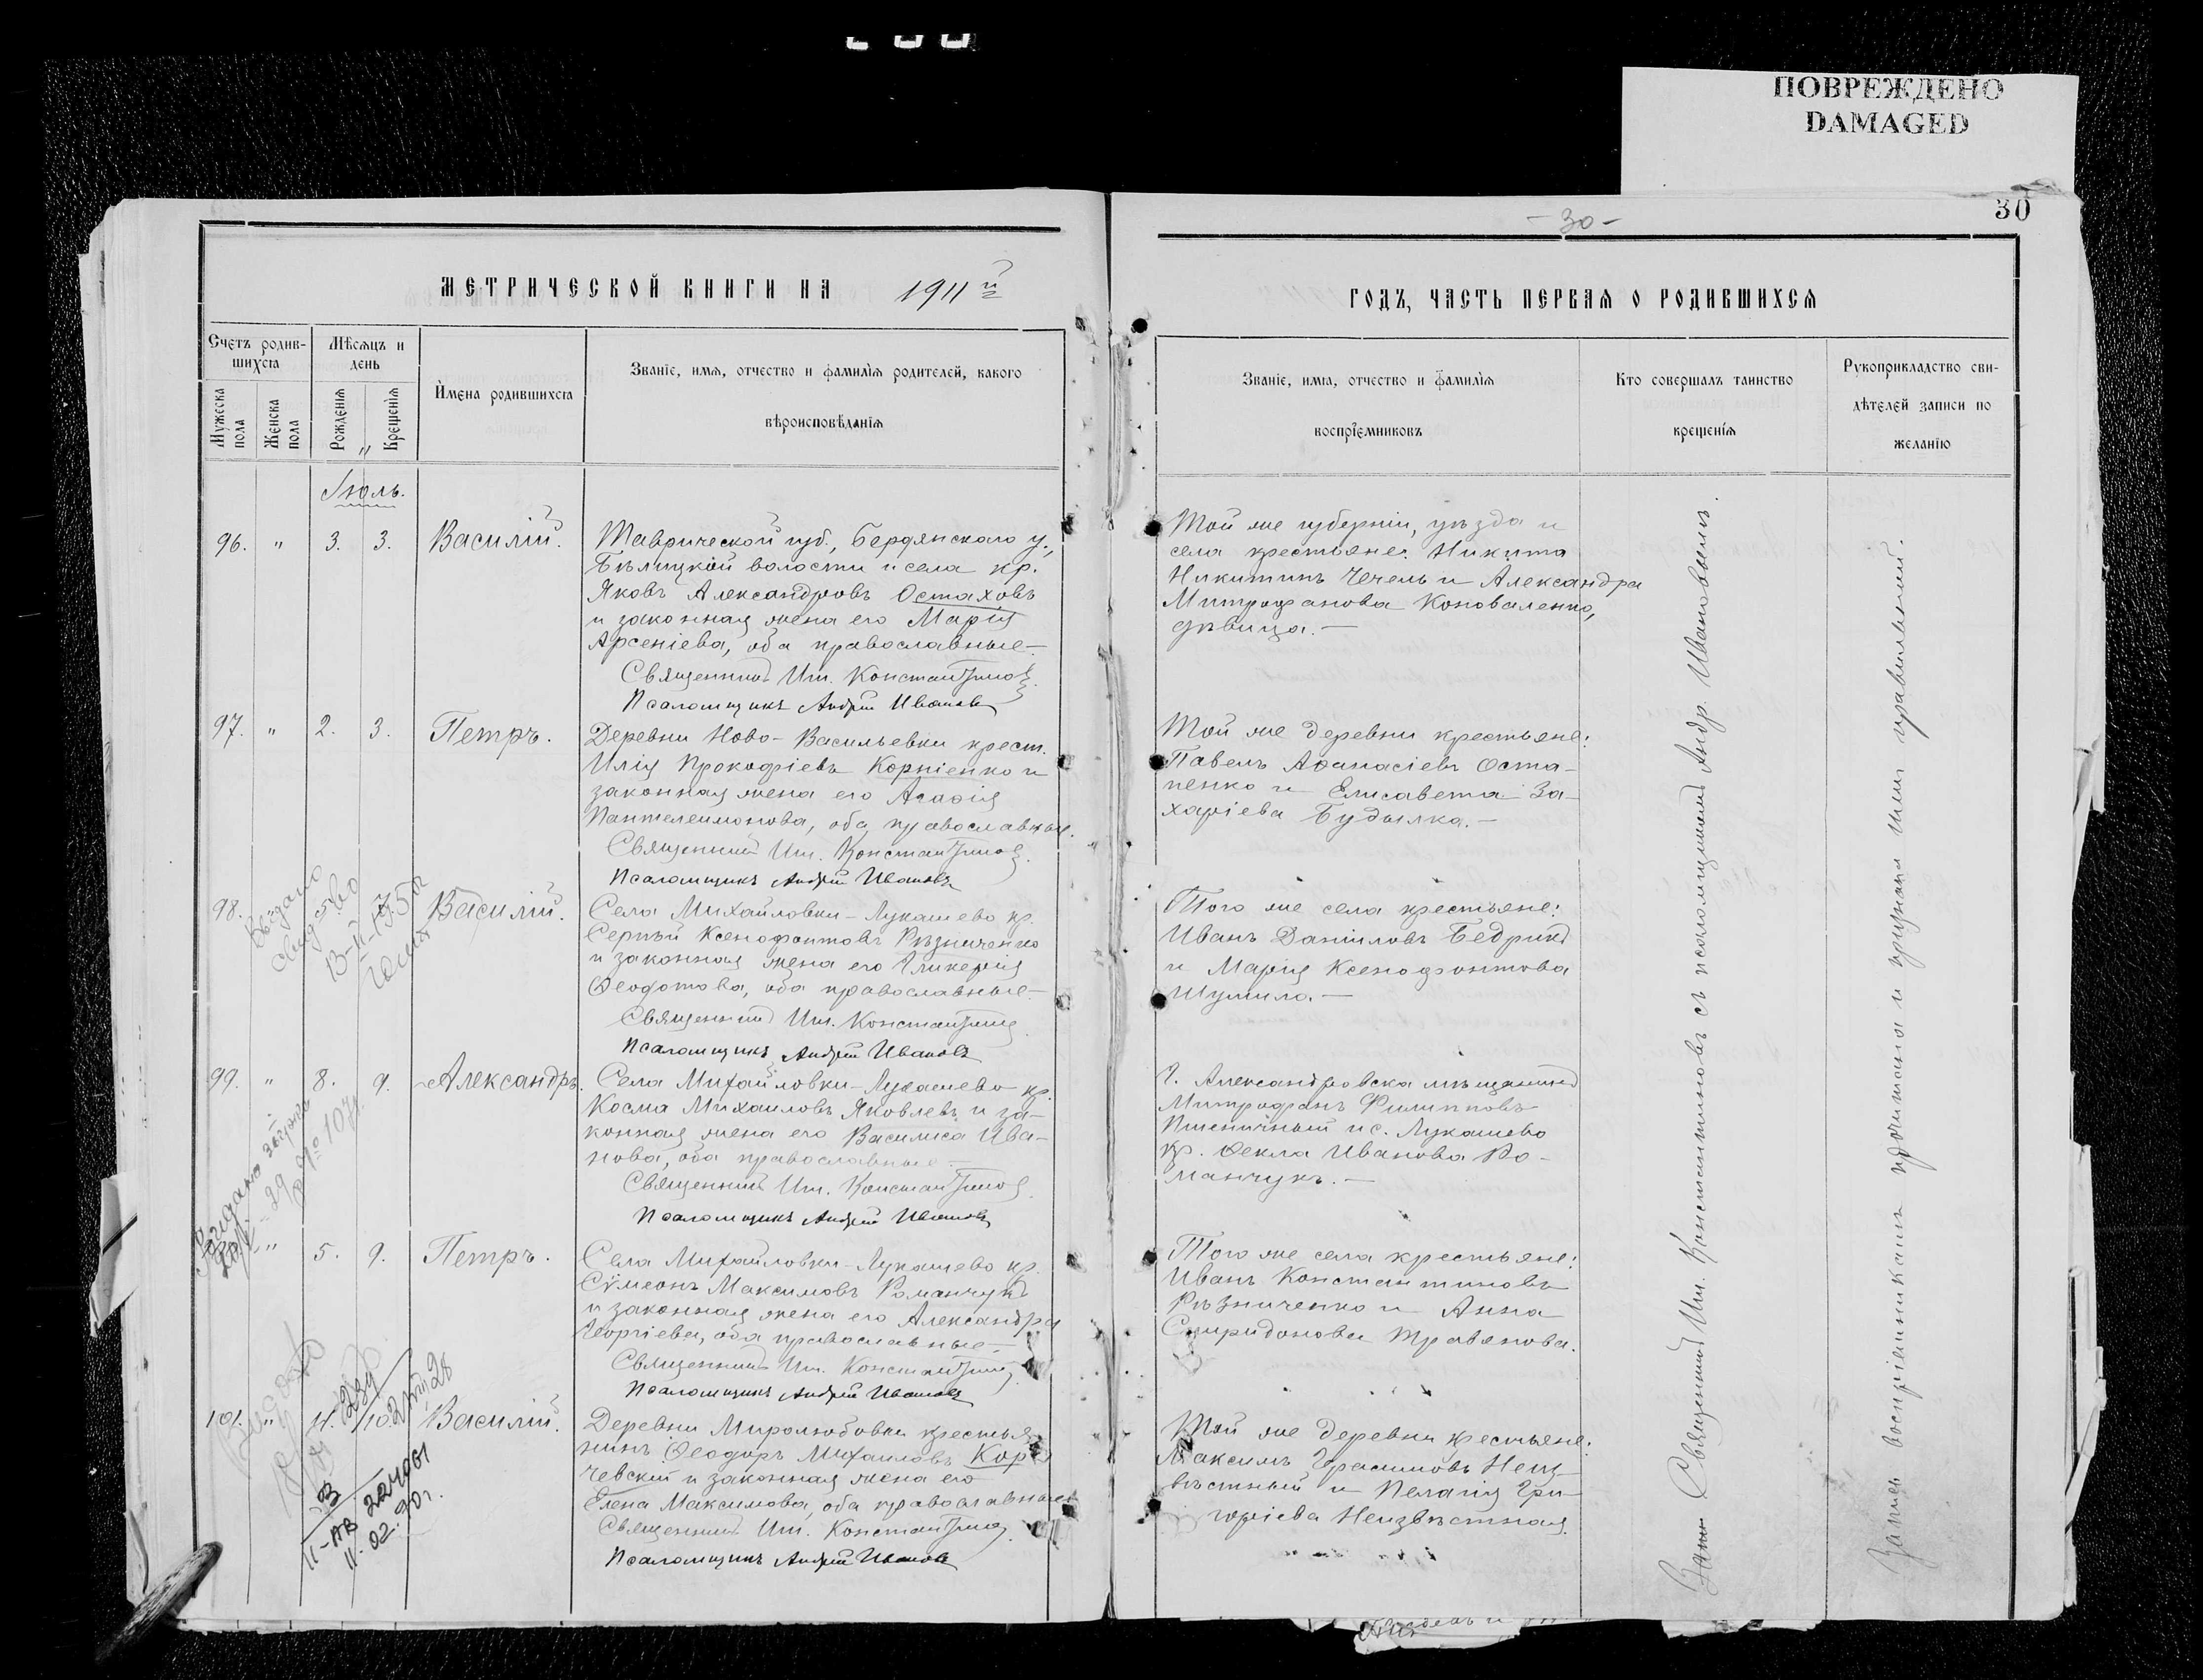 ПОВРЕЖДЕНО
DAMAGED
30
- 30 -
МЕТРИЧЕСКОЙ КНИГИ НА 1911й
ГОДЪ, ЧАСТЬ ПЕРВАЯ О РОДИВШИХСЯ
Счетъ родив-
шихся
Мужеска пола
Женска пола
Мѣсяцъ и
день
Рожденія
Крещенія
Имена родившихся
Званіе, имя, отчество и фамилія родителей, какого
вѣроисповѣданія
Званіе, имя, отчество и фамилія
воспріемниковъ
Кто совершалъ таинство
крещенія
Рукоприкладство сви-
дѣтелей записи по
желанію
Іюль.
96. " 3. 3. Василій.
Таврической губ., Бердянскаго у.,
Бѣлицкой волости и села кр.
Яковъ Александровъ Остаховъ
и законная жена его Марія
Арсеніева, оба православные.-
Священникъ Ил. Константиновъ.
Псаломщикъ Андрей Ивановъ
Той же губерніи, уѣзда и
села крестьяне: Никита
Никитинъ Чечель и Александра
Митрофанова Коноваленко,
дѣвица.-
97. " 2. 3. Петръ.
Деревни Ново-Васильевки крест.
Илія Прокофіевъ Корніенко и
законная жена его Агафія
Пантелеимонова, оба православные.
Священникъ Ил. Константиновъ.
Псаломщикъ Андрей Ивановъ
Той же деревни крестьяне:
Павелъ Аѳанасіевъ Оста-
пенко и Елисавета За-
харіева Будылка.-
98. Василій.
Выдано
13-II-195
Села Михайловки-Лукашево кр.
Сергѣй Ксенофонтовъ Рѣзниченко
и законная жена его Гликерія
Ѳеодотова, оба православные.-
Священникъ Ил. Константиновъ.
Псаломщикъ Андрей Ивановъ
Того же села крестьяне:
Иванъ Даніиловъ Бедрикъ
и Марія Ксенофонтова
Шумило.-
99. " 8. 9. Александръ.
Села Михайловки-Лукашево кр.
Косма Михаиловъ Яковлевъ и за-
конная жена его Василиса Ива-
нова, оба православные.-
Священникъ Ил. Константиновъ.
Псаломщикъ Андрей Ивановъ
Г. Александровска мѣщанинъ
Митрофанъ Филипповъ
Пшеничный и с. Лукашево
кр. Ѳекла Иванова Ро-
манчукъ.-
" 5. 9. Петръ.
Села Михайловки-Лукашево кр.
Сѵмеонъ Максимовъ Романчукъ
и законная жена его Александра
Георгіева, оба православные.-
Священникъ Ил. Константиновъ.
Псаломщикъ Андрей Ивановъ
Того же села крестьяне:
Иванъ Константиновъ
Рѣзниченко и Анна
Спиридонова Травянова.
101. " 10. Василій.
II-АВ 224061
11.02.90г.
Деревни Миролюбовки крестья-
нинъ Ѳеодоръ Михаиловъ Кор
чевскій и законная жена его
Елена Максимова, оба православные
Священникъ Ил. Константиновъ.
Псаломщикъ Андрей Ивановъ
Той же деревни крестьяне:
Максимъ Герасимовъ Неиз-
вѣстный и Пелагія Гри-
горіева Неизвѣстная.
Священникъ Ил. Константиновъ съ псаломщикомъ Андр. Ивановымъ.
Запись воспріемниками прочитана и признана ими правильной.